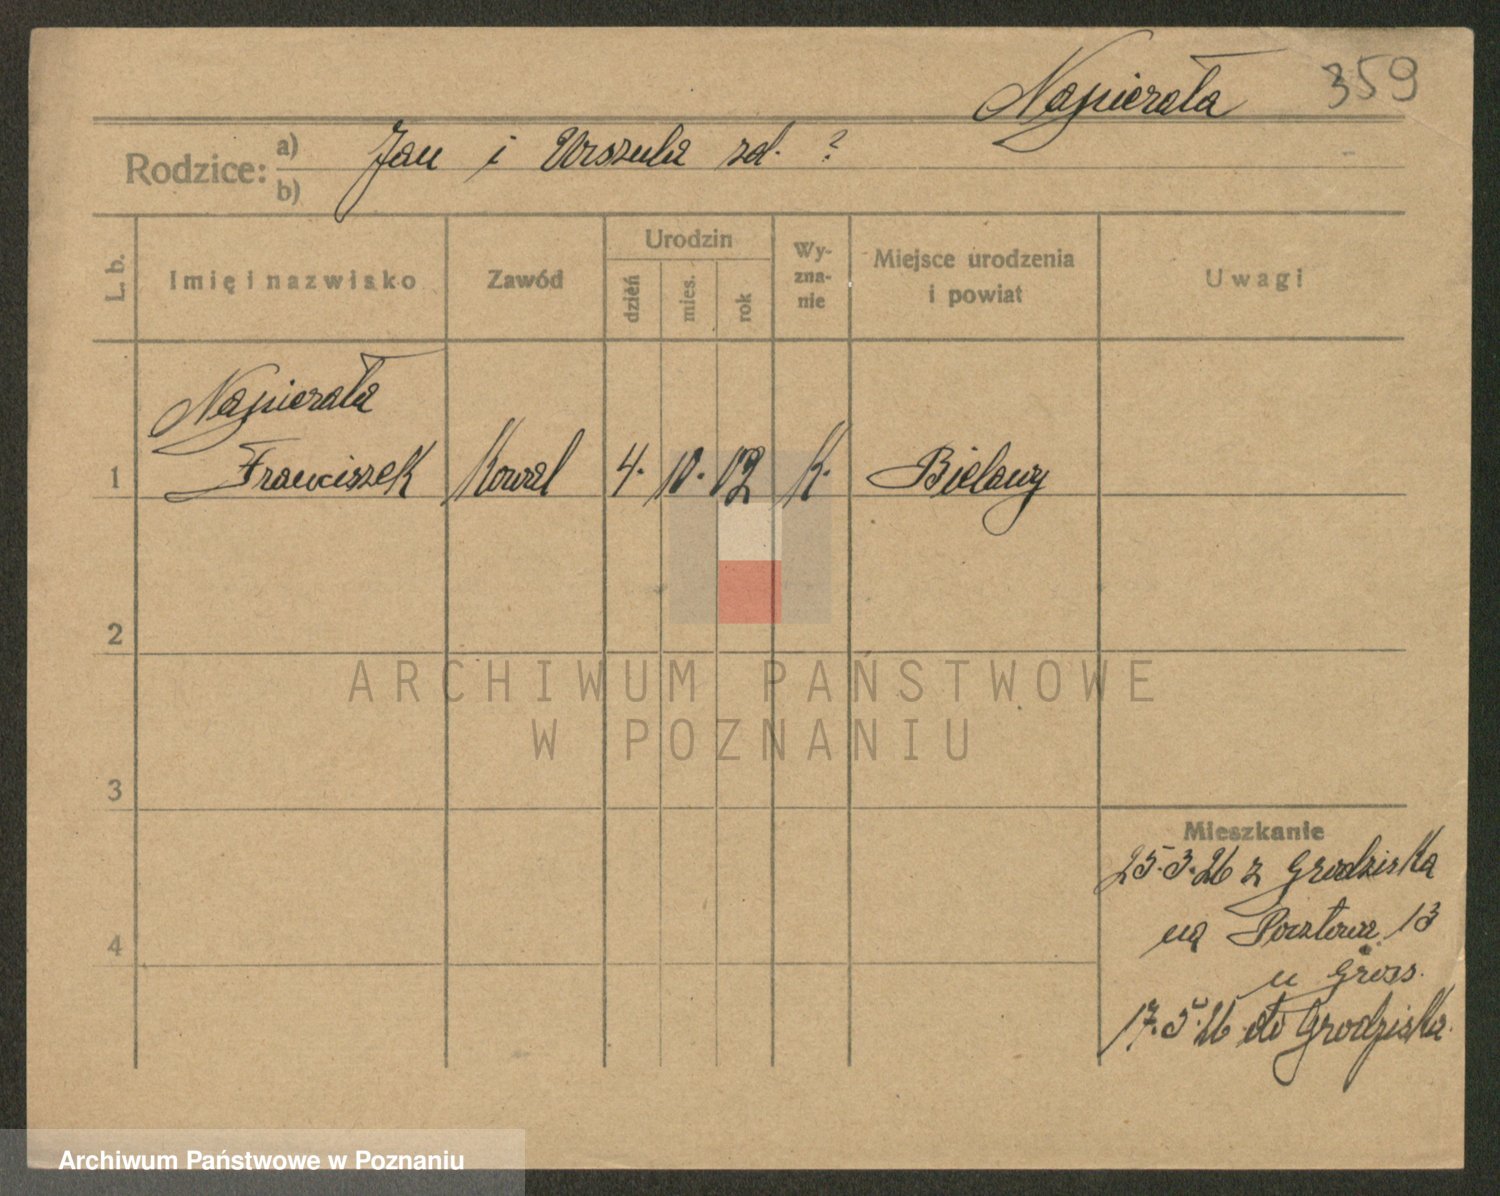 Napierała 359
Rodzice: a) Jan i Urszula zd. ?
b)
L. b.
Imię i nazwisko
Zawód
Urodzin
dzień
mies.
rok
Wy-
zna-
nie
Miejsce urodzenia
i powiat
Uwagi
Napierała
1 Franciszek Kowal 4. 10. 02 K. Bielawy
2
3
4
Mieszkanie
25.3.26 z Grodziska
na Pocztowa 13
u Gross.
17.5.26 do Grodziska.
ARCHIWUM PAŃSTWOWE
W POZNANIU
Archiwum Państwowe w Poznaniu